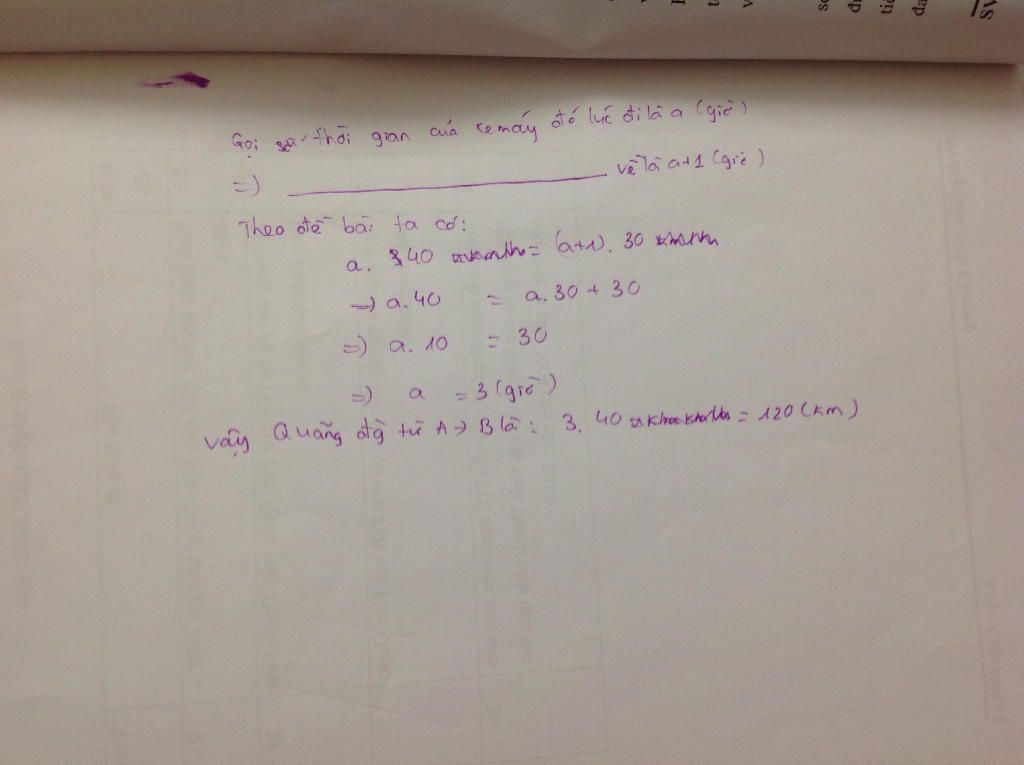 Gọi thời gian của xe máy đó lúc đi là a (giờ)
=) ___ về là a+1 (giờ)
Theo đề bài ta có:
a. 40 = (a+1). 30
=) a.40 = a.30 + 30
=) a. 10 = 30
=) a = 3 (giờ)
Vậy Quãng đg từ A → B là: 3. 40 = 120 (km)